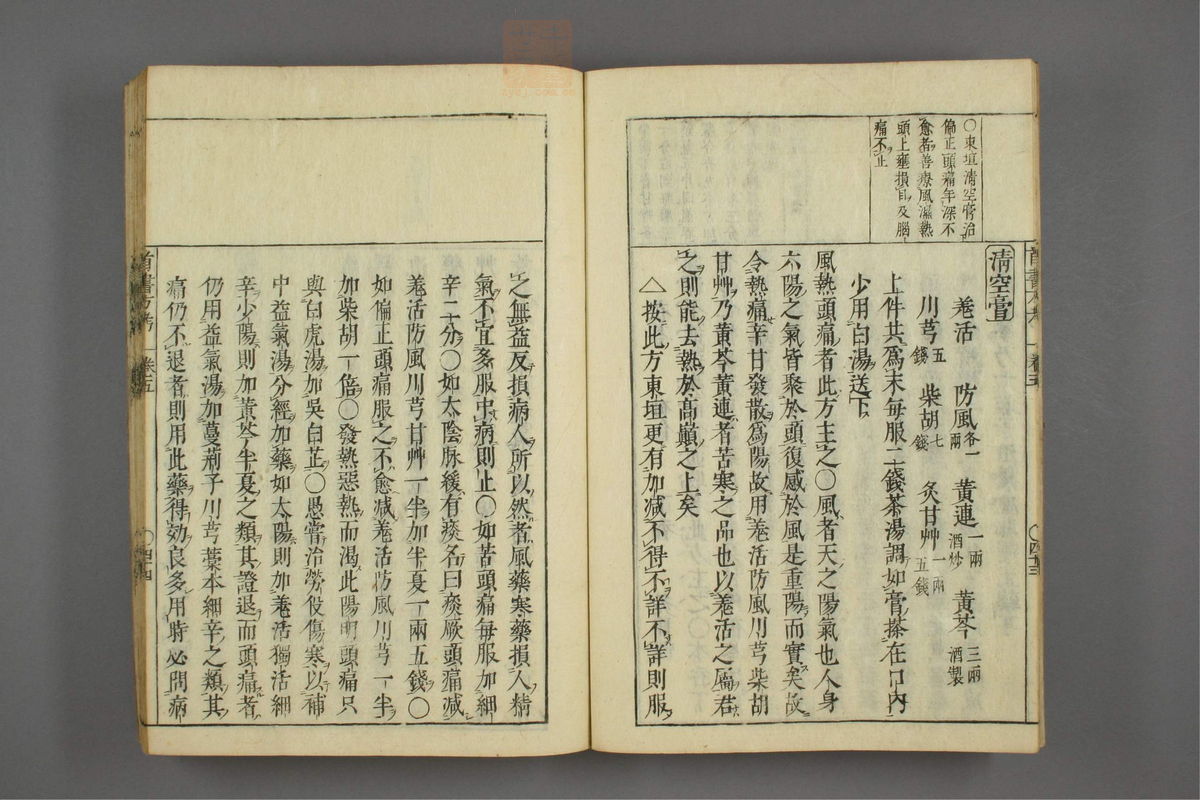 〇東垣清空膏治
偏正頭痛年深不
愈者善療風濕熱
頭上壅損目及腦
痛不止
清空膏
羗活 防風各一兩 黃連一兩酒炒 黃芩三兩酒製
川芎五錢 柴胡七錢 炙甘艸一兩五錢
上件共爲末每服二錢茶湯調如膏搽在口內
少用白湯送下
風熱頭痛者此方主之〇風者天之陽氣也人身
六陽之氣皆聚於頭復感於風是重陽而實矣故
令熱痛辛甘發散爲陽故用羗活防風川芎柴胡
甘艸乃黃芩黃連者苦寒之品也以羗活之屬君
之則能去熱於高巔之上矣
△按此方東垣更有加減不得不詳不詳則服
之無益反損病人所以然者風藥寒藥損人精
氣不宜多服中病則止〇如苦頭痛每服加細
辛二分〇如太陰脉緩有痰名曰痰厥頭痛減
羗活防風川芎甘艸一半加半夏一兩五錢〇
如偏正頭痛服之不愈減羗活防風川芎一半
加柴胡一倍〇發熱惡熱而渴此陽明頭痛只
與白虎湯加吳白芷〇愚嘗治勞役傷寒以補
中益氣湯分經加藥如太陽則加羗活獨活細
辛少陽則加黃芩半夏之類其證退而頭痛者
仍用益氣湯加蔓荊子川芎藁本細辛之類其
痛仍不退者則用此藥得効良多用時必問病